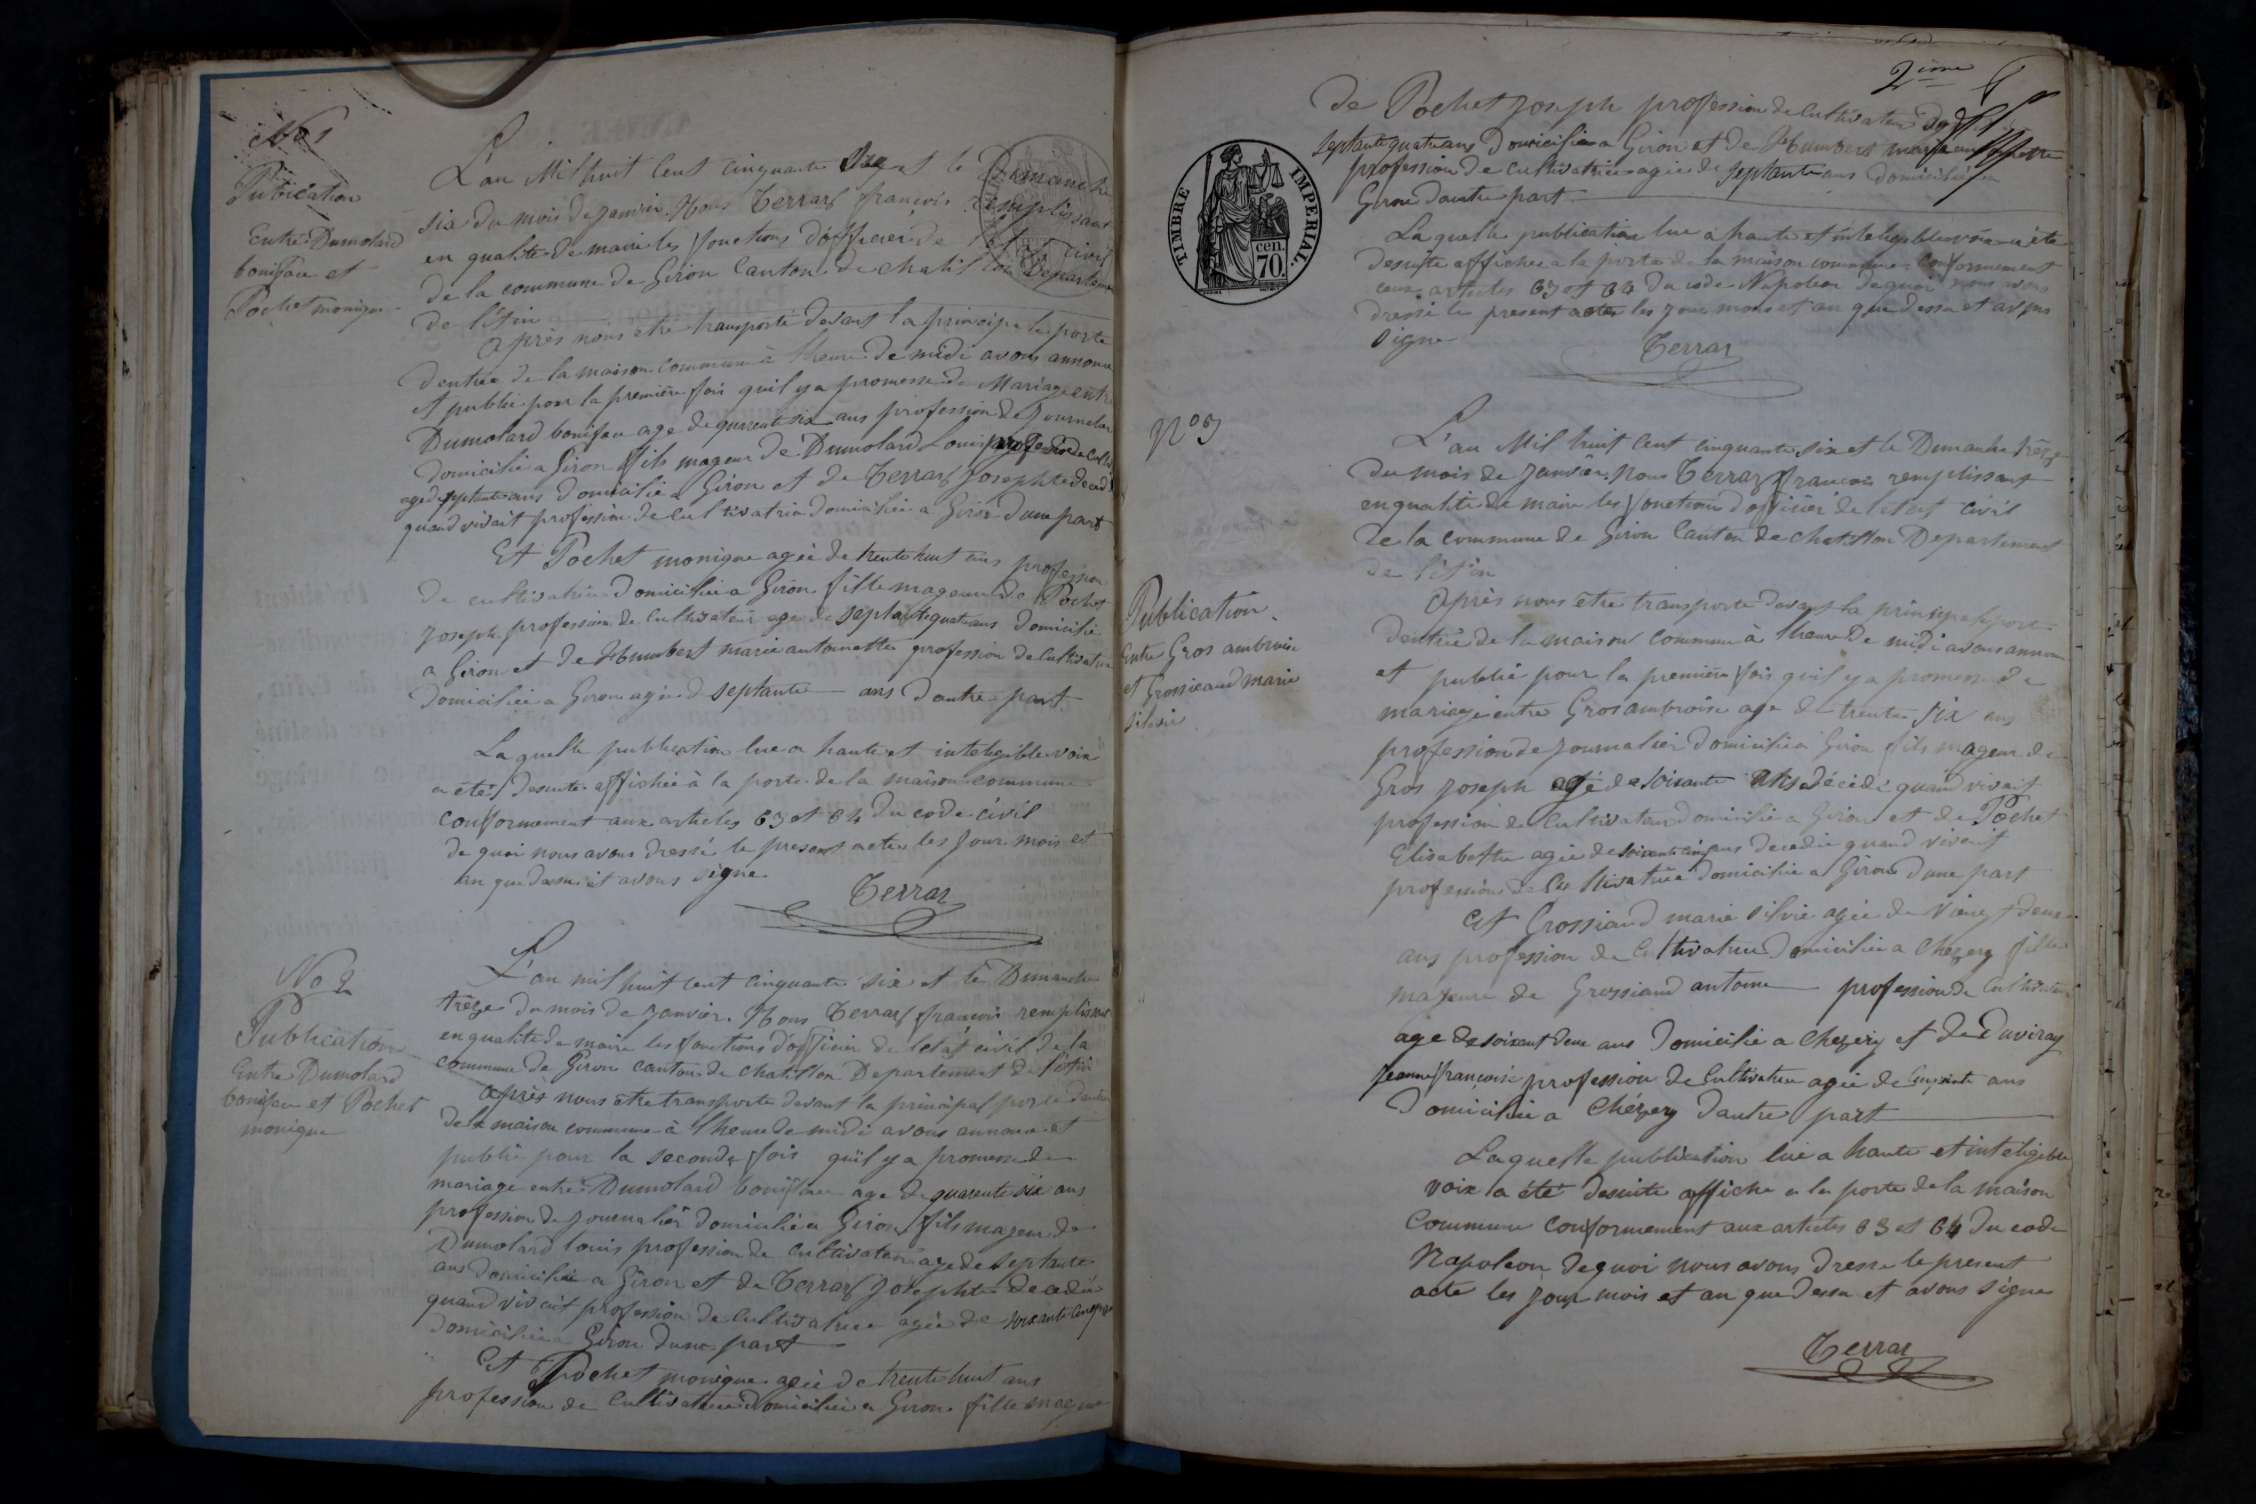 No 1
Publication
Entre Dumolard
boniface et
Pochet monique
L'an Mil huit Cent cinquante Six et le Dimanche
six du mois de Janvier. Nous Terraz françois remplissant
en qualité de maire les fonctions d'officier de l'etat civil
de la commune de Giron Canton de chatillon Departement
de l'Ain
Après nous etre transporté devant la principale porte
dentrée de la maison commune à l heure de midi avons annoncé
et publié pour la première fois quil y a promesse de Mariage entre
Dumolard boniface age de quarente six ans profession de Journalier
domicilié a Giron fils mageur de Dumolard Louis profession de Cult
age de septante ans domicilié a Giron et de Terraz Josephte decedé
quand vivait profession de cultivatrice domiciliée a Giron d'une part
Et Pochet monique agée de trente huit ans profession
de cultivatrice domiciliée a Giron fille mageure de Pochet
Joseph profession de cultivateur age de septante quatre ans domicilié
a Giron et de Humbert marie antoinette profession de Cultivatrice
domiciliée a Giron agée d septante ans d'autre part.
La quelle publication lue a haute et inteligible voix
a été desuite affichée à la porte de la maison commune
conformement aux articles 63 et 64 du code civil
de quoi nous avons dressé le present acte les Jour mois et
an que dessus et avons signe
Terraz
No 2
Publication
Entre Dumolard
boniface et Pochet
monique
L'an mil huit cent cinquante six et le Dimanche
trêze du mois de Janvier. Nous Terraz françois remplissant
en qualité de maire les fonctions d'officier de l'etat civil de la
commune de Giron canton de chatillon Departement de l'Ain
Après nous etre transporte devant la principal porte dentrée
de la maison commune à l'heure de midi avons annoncé et
publié pour la seconde fois quil y a promesse de
mariage entre Dumolard boniface age de quarente six ans
profession de journalier domicilié a Giron fils mageur de
Dumolard louis profession de cultivateur age de septante
ans domicilié a Giron et de Terraz Josephte decedée
quand vivait profession de Cultivatrice agée de soixante cinq
domiciliée a Giron d'une part
Et Pochet monique agée de trente huit ans
profession de Cultivatrice domiciliée a Giron fille mageure
2ième
de Pochet Joseph profession de Cultivateur age
septante quatre ans domicilié a Giron et de Humbert marie antoinette
profession de cultivatrice agée de septante ans domiciliée a
Giron d'autre part
TIMBRE IMPERIAL.
cen.
70.
La quelle publication lue a haute et inteligible voix a été
desuite affichée a la porte de la maison commune conformement
aux articles 63 et 64 du code Napoleon de quoi nous avons
dressé le present acte les jour mois et an que dessus et avons
signe
Terraz
No 3
Publication
Entre Gros ambroise
et Grossiand marie
silvie
L'an Mil huit cent cinquante six et le Dimanche trêze
du mois de Janvier. Nous Terraz françois remplissant
en qualité de maire les fonctions d'officier de l'etat civil
de la commune de Giron Canton de chatillon Departement
de l'Ain
Après nous être transporte devant la principale porte
dentrée de la maison commune à l heure de midi avons annoncé
et publié pour la première fois quil y a promesse de
mariage entre Gros ambroise age de trente six ans
profession de Journalier domicilié a Giron fils mageur de
Gros Joseph agé de soixante ans décédé quand vivait
profession de Cultivateur domicilié a Giron et de Pochet
Elisabethe agée de soixante cinq ans decedée quand vivait
profession de Cultivatrice domiciliée a Giron d'une part
Et Grossiand marie silvie agée de vingt deux
ans profession de Cultivatrice domiciliée a Chezery fille
mageure de Grossiand antoine profession de Cultivateur
age de soixant deux ans domicilié a chezery et de Duviray
Jeanne françoise profession de Cultivatrice agée de cinquante ans
domiciliée a Chézery d'autre part
Laquelle publication lue a haute et inteligible
voix a été desuite affiche a la porte de la maison
Commune conformement aux articles 63 et 64 du code
Napoleon de quoi nous avons dressé le present
acte les jour mois et an que dessu et avons signe
Terraz